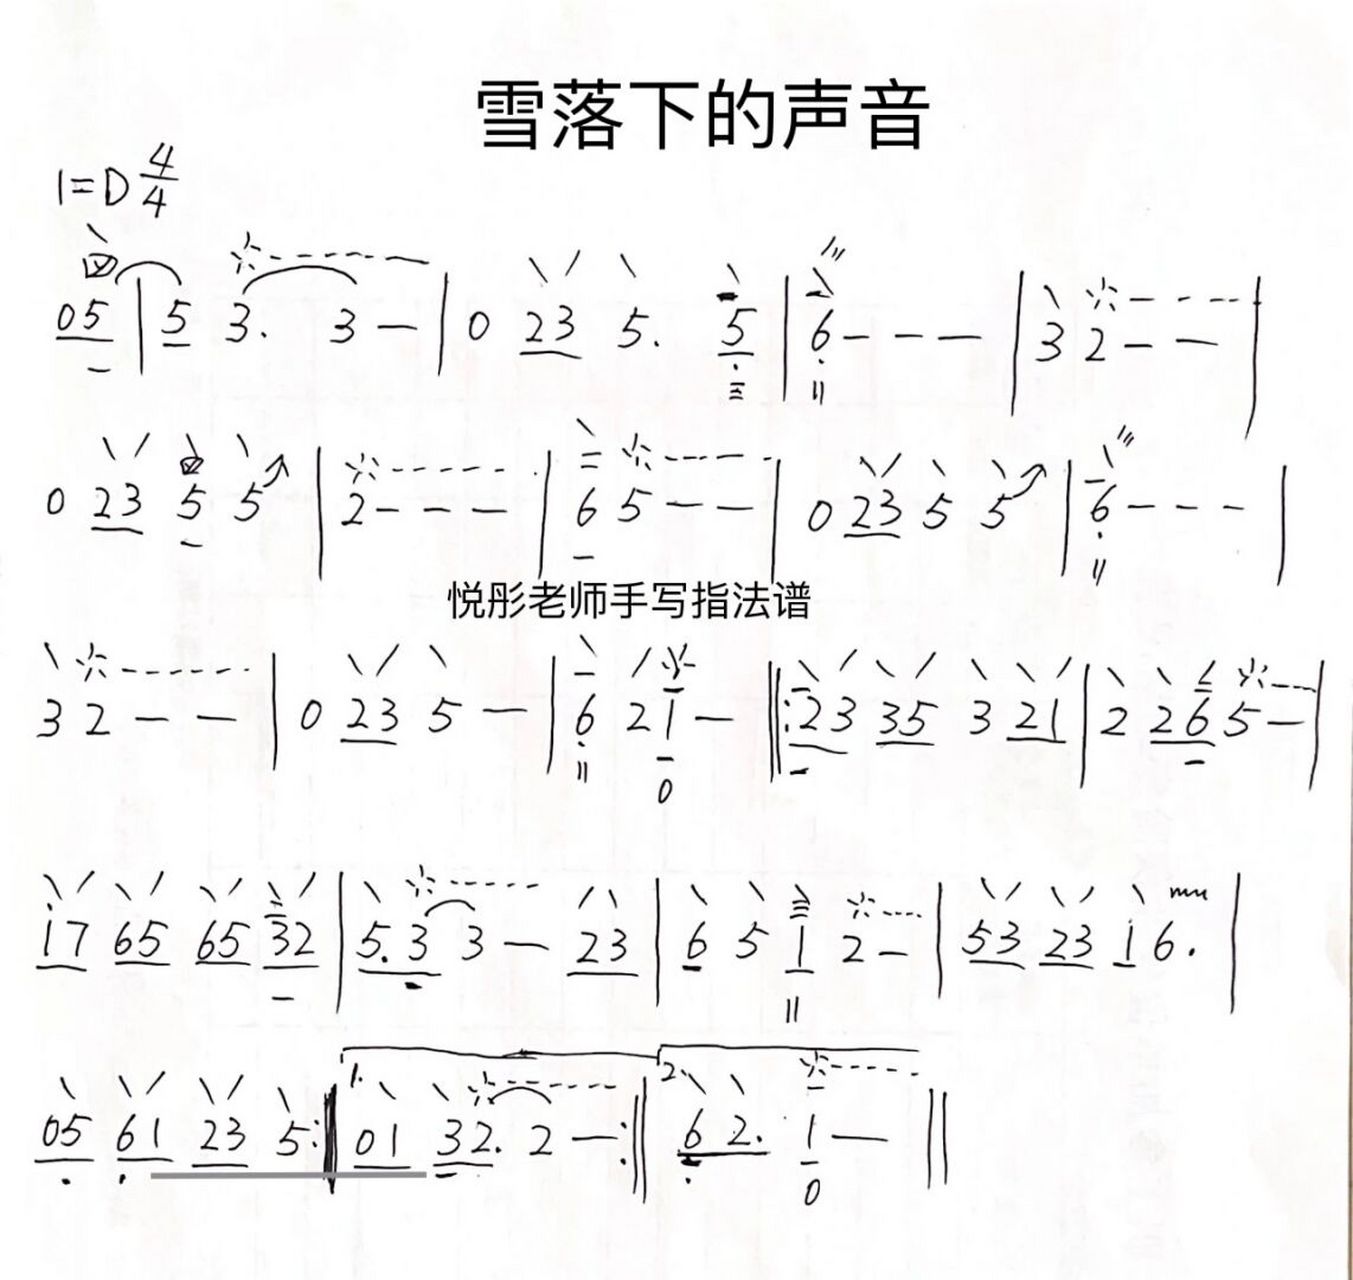 雪落下的声音
1=D 4/4
05 | 5 3. 3 — | 0 23 5. 5 | 6 – – — | 3 2 – — |
0 23 5 5 | 2 – – – | 6 5 – – | 0 23 5 5 | 6 – – – |
悦彤老师手写指法谱
3 2 – – | 0 23 5 – | 6 2 1 – ‖: 23 35 3 21 | 2 26 5 – |
17 65 65 32 | 5.3 3 — 23 | 6 5 1 2 – | 53 23 1 6. |
05 61 23 5 :‖ 1. 01 32. 2 — :‖ 2. 6 2. 1 — ‖